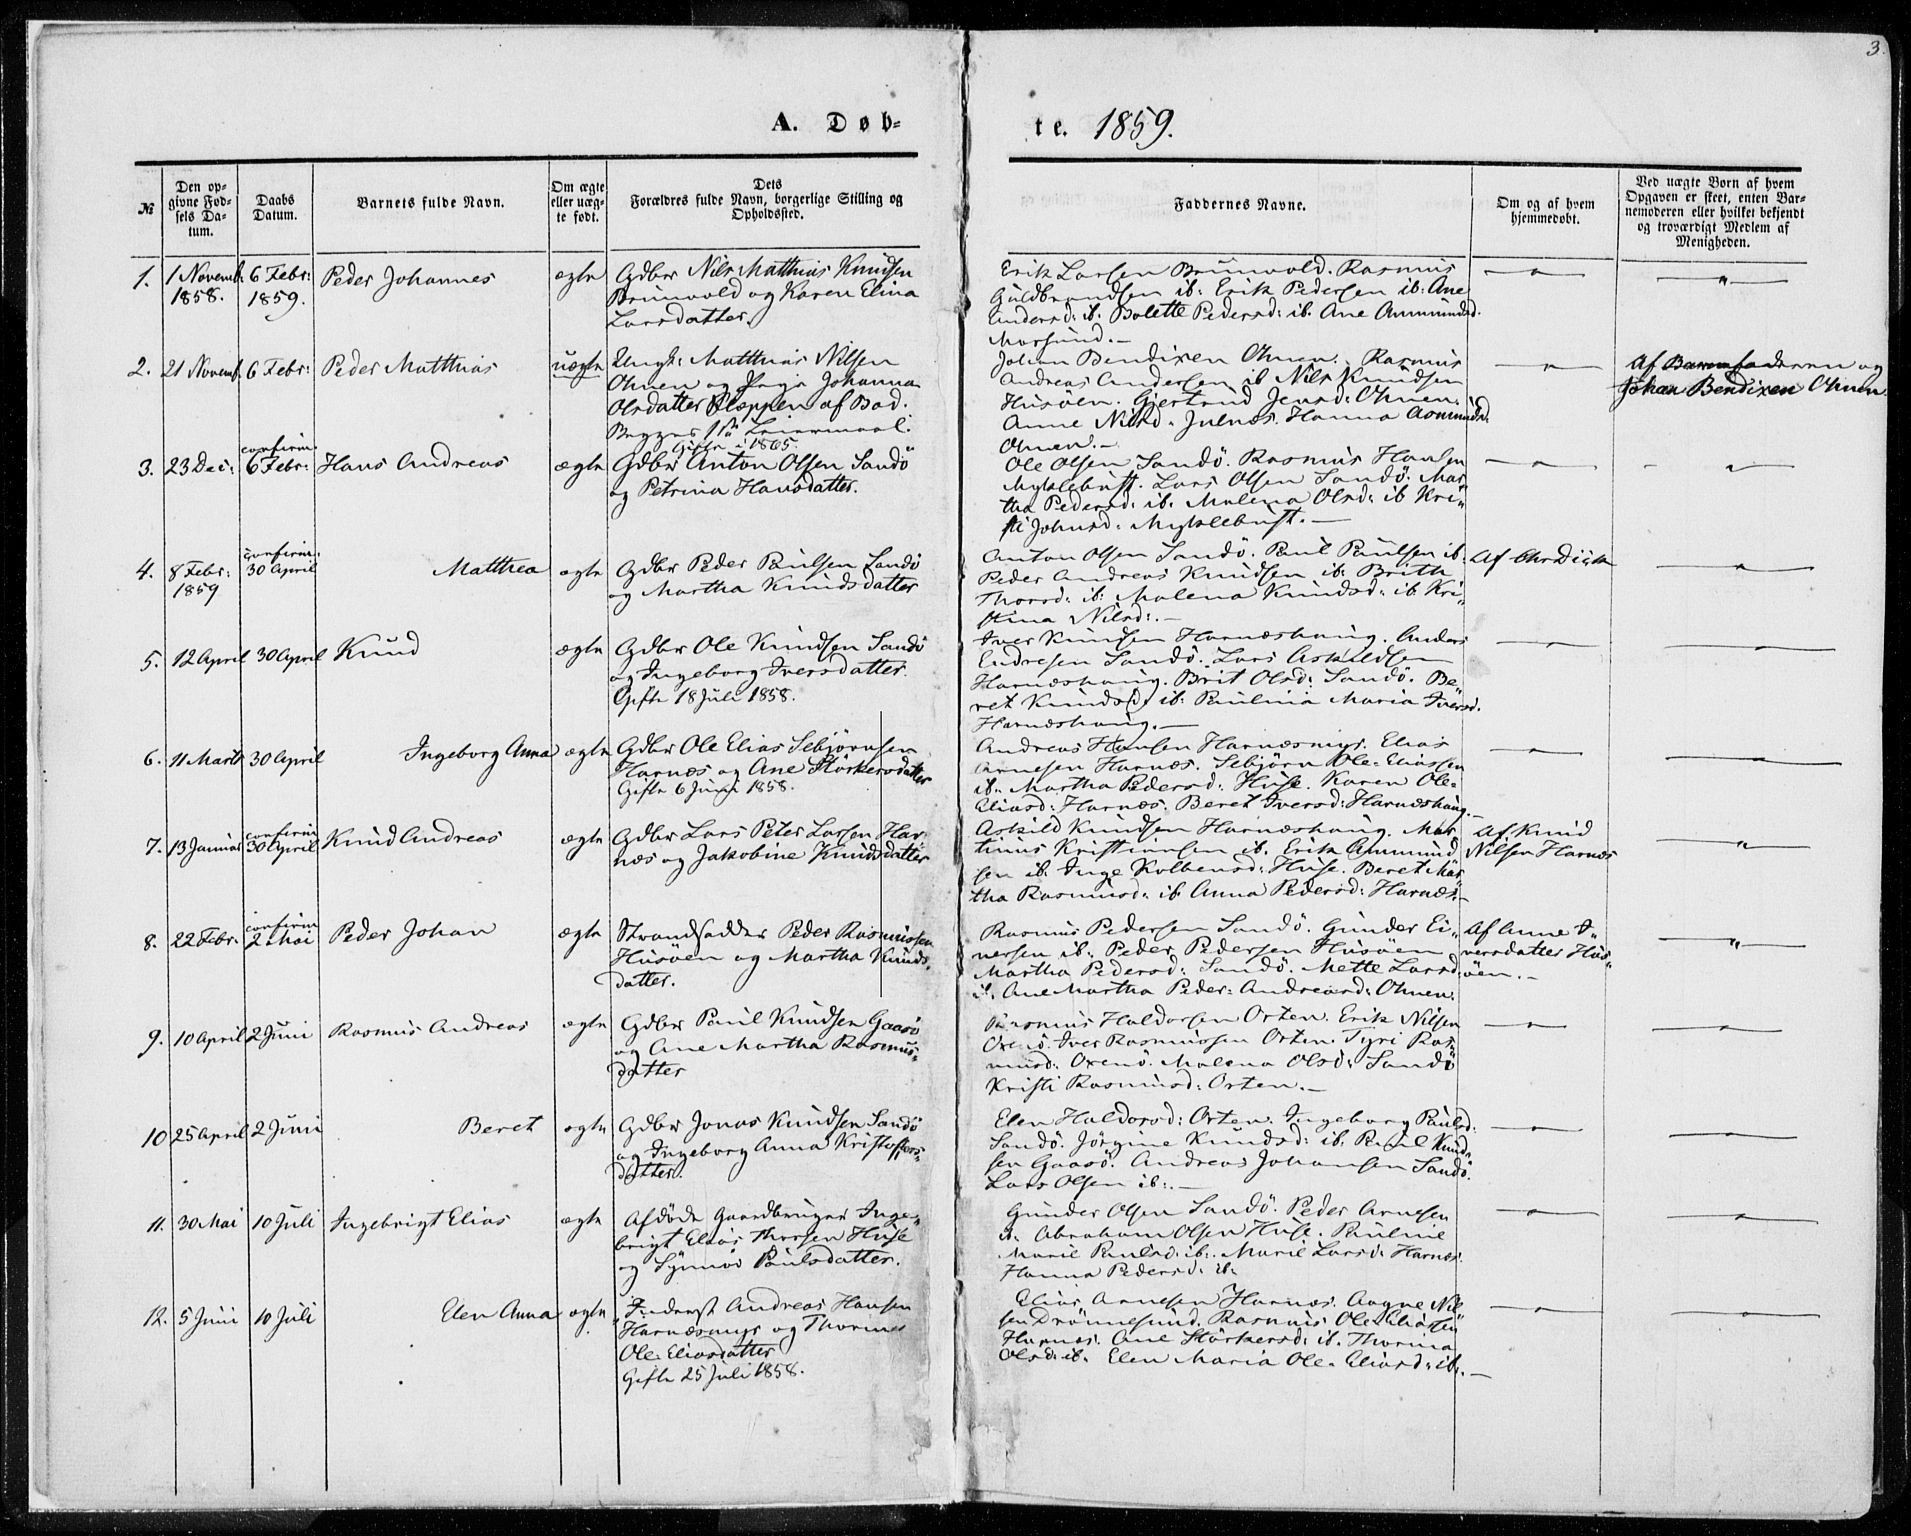 3.
A. Døb-
te. 1859.
№
Den op-
givne Fød-
sels Da-
tum.
Daabs
Datum.
Barnets fulde Navn.
Om ægte
eller uæg-
te født.
Dets
Forældres fulde Navn, borgerlige Stilling og
Opholdssted.
Faddernes Navne.
Om og af hvem
hjemmedøbt.
Ved uægte Børn af hvem
Opgaven er skeet, enten Bar-
nemoderen eller hvilket bekjendt
og troværdigt Medlem af
Menigheden.
1.
1 Novemb.
1858.
6 Febr:
1859.
Peder Johannes
ægte
Gdbr Nils Matthias Knudsen
Brunvold og Karen Elina
Larsdatter.
Erik Larsen Brunvold. Rasmus
Guldbrandsen ib: Erik Pedersen ib: Ane
Endersd: ib. Bolette Pedersd: ib. Ane Ammundsd.
Morsund.
2.
21 Novemb.
6 Febr:
Peder Matthias
uægte
Ungk: Matthias Nilsen
Ohnen og Pige Johanna
Olsdatter Kleppen af Bod.
Begges 1ste Leiermaal.
Gifte i 1865.
Johan Bendixen Ohnen. Rasmus
Andreas Andersen ib Nils Knudsen
Husøen. Gjertrud Jensd: Ohnen.
Anne Nilsd. Julnæs. Hanna Aamundsd:
Ohnen.
Af Barnefaderen og
Johan Bendixen Ohnen
3.
23 Dec:
confirm
6 Febr:
Hans Andreas
ægte
Gdbr Anton Olsen Sandö
og Petrina Hansdatter.
Ole Olsen Sandö. Rasmus Hansen
Myklebust. Lars Olsen Sandö. Mar-
tha Pedersd: ib. Malena Olsd: ib Kri-
sti Johnsd: Myklebust.
4.
8 Febr:
1859
confirm:
30 April
Matthea
ægte
Gdbr Peder Paulsen Sandö
og Martha Knudsdatter
Anton Olsen Sandö. Paul Paulsen ib.
Peder Andreas Knudsen ib: Brith
Thorsd: ib: Malena Knudsd: ib. Kri-
stina Nilsd:
5.
12 April
30 April
Knud
ægte
Gdbr Ole Knudsen Sandö
og Ingeborg Iversdatter.
Gifte 18 Juli 1858.
Iver Knudsen Harnæshaug. Anders
Endresen Sandö. Lars Askildsen
Harnæshaug. Brit Olsd: Sandö. Be-
ret Knudsd: ib: Paulina Maria Iversd.
Harnæshaug.
6.
11 Marts
30 April
Ingeborg Anna
ægte
Gdbr Ole Elias Sebjörnsen
Harnæs og Ane Störkersdatter
Gifte 6 Juni 1858.
Andreas Hansen Harnæsmyr. Elias
Arnesen Harnæs. Sebjörn Ole-Eliassen
ib. Martha Pedersd: Huse. Karen Ole-
Eliasd: Harnæs. Beret Iversd: Harnæshaug.
7.
13 Januar
confirm
30 April
Knud Andreas
ægte
Gdbr Lars Peter Larsen Har-
næs og Jakobine Knudsdatter
Askild Knudsen Harnæshaug. Mar-
tinus Kristiansen ib. Erik Ammund-
sen ib: Inge Kolbensd: Huse. Beret Mar-
tha Rasmusd: ib. Anna Pedersd: Harnæs.
Af Knud
Nilsen Harnæs
8.
22 Febr.
confirm
2 Mai
Peder Johan
ægte
Strandsidder Peder Rasmussen
Husöen og Martha Knuds-
datter.
Rasmus Pedersen Sandö. Gunder Ei-
nersen ib: Peder Pedersen Husöen
Martha Pedersd: Sandö. Mette Larsd:
ib. Ane Martha Peder-Andreasd: Ohnen.
Af Anne I-
versdatter Hus-
öen.
9.
10 April
2 Juni
Rasmus Andreas
ægte
Gdbr Paul Knudsen Gaasö
og Ane Martha Rasmus-
datter
Rasmus Haldorsen Orten. Erik Nilsen
Oxenö. Iver Rasmussen Orten. Tyri Ras-
musd: Oxenö. Malena Olsd: Sandö
Kristi Rasmusd: Orten.
10
25 April
2 Juni
Beret
ægte
Gdbr Jonas Knudsen Sandö
og Ingeborg Anna Kristoffers-
datter.
Elen Haldorsd: Orten. Ingeborg Paulsd:
Sandö. Jörgine Knudsd: ib. Paul Knud-
sen Gaasö. Andreas Johansen Sandö.
Lars Olsen ib:
11.
30 Mai
10 Juli
Ingebrigt Elias
ægte
Afdöde Gaardbruger Inge-
brigt Elias Thorsen Huse
og Synnöv Paulsdatter.
Gunder Olsen Sandö. Peder Arnesen
ib. Abraham Olsen Huse. Pauline
Marie Paulsd: ib: Marie Larsd: Harnæs.
Hanna Pedersd: ib.
12.
5 Juni
10 Juli
Elen Anna
ægte
Inderst Andreas Hansen
Harnæsmyr og Thorina
Ole-Eliasdatter
Gifte 25 Juli 1858.
Elias Arnesen Harnæs. Aagne Nil-
sen Drönnesund. Rasmus Ole-Eliassen
Harnæs. Ane Störkersd: ib. Thorina
Olsd: ib. Elen Maria Ole-Eliasd: ib.